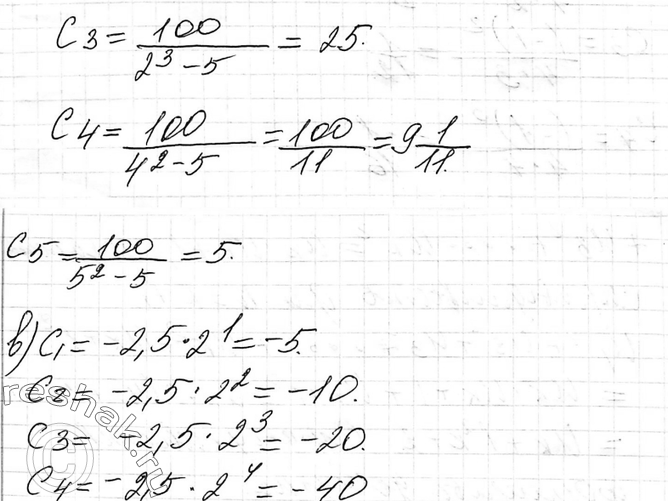 C3 = 100 / (2^3 - 5) = 25.
C4 = 100 / (4^2 - 5) = 100 / 11 = 9 1/11.
C5 = 100 / (5^2 - 5) = 5.
в) C1 = -2,5 · 2^1 = -5.
C2 = -2,5 · 2^2 = -10.
C3 = -2,5 · 2^3 = -20.
C4 = -2,5 · 2^4 = -40
reshak.ru